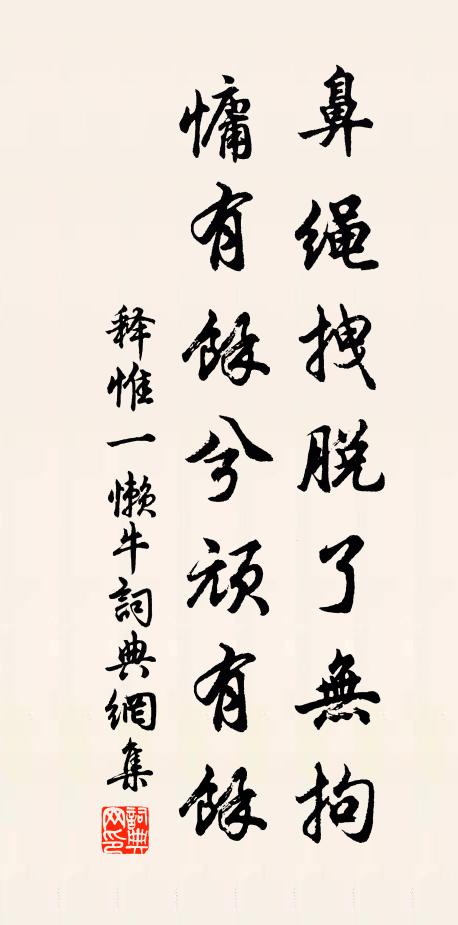 鼻绳拽脱了無拘
慵有餘兮頑有餘
释惟一懒牛詞典網集
詞典網印